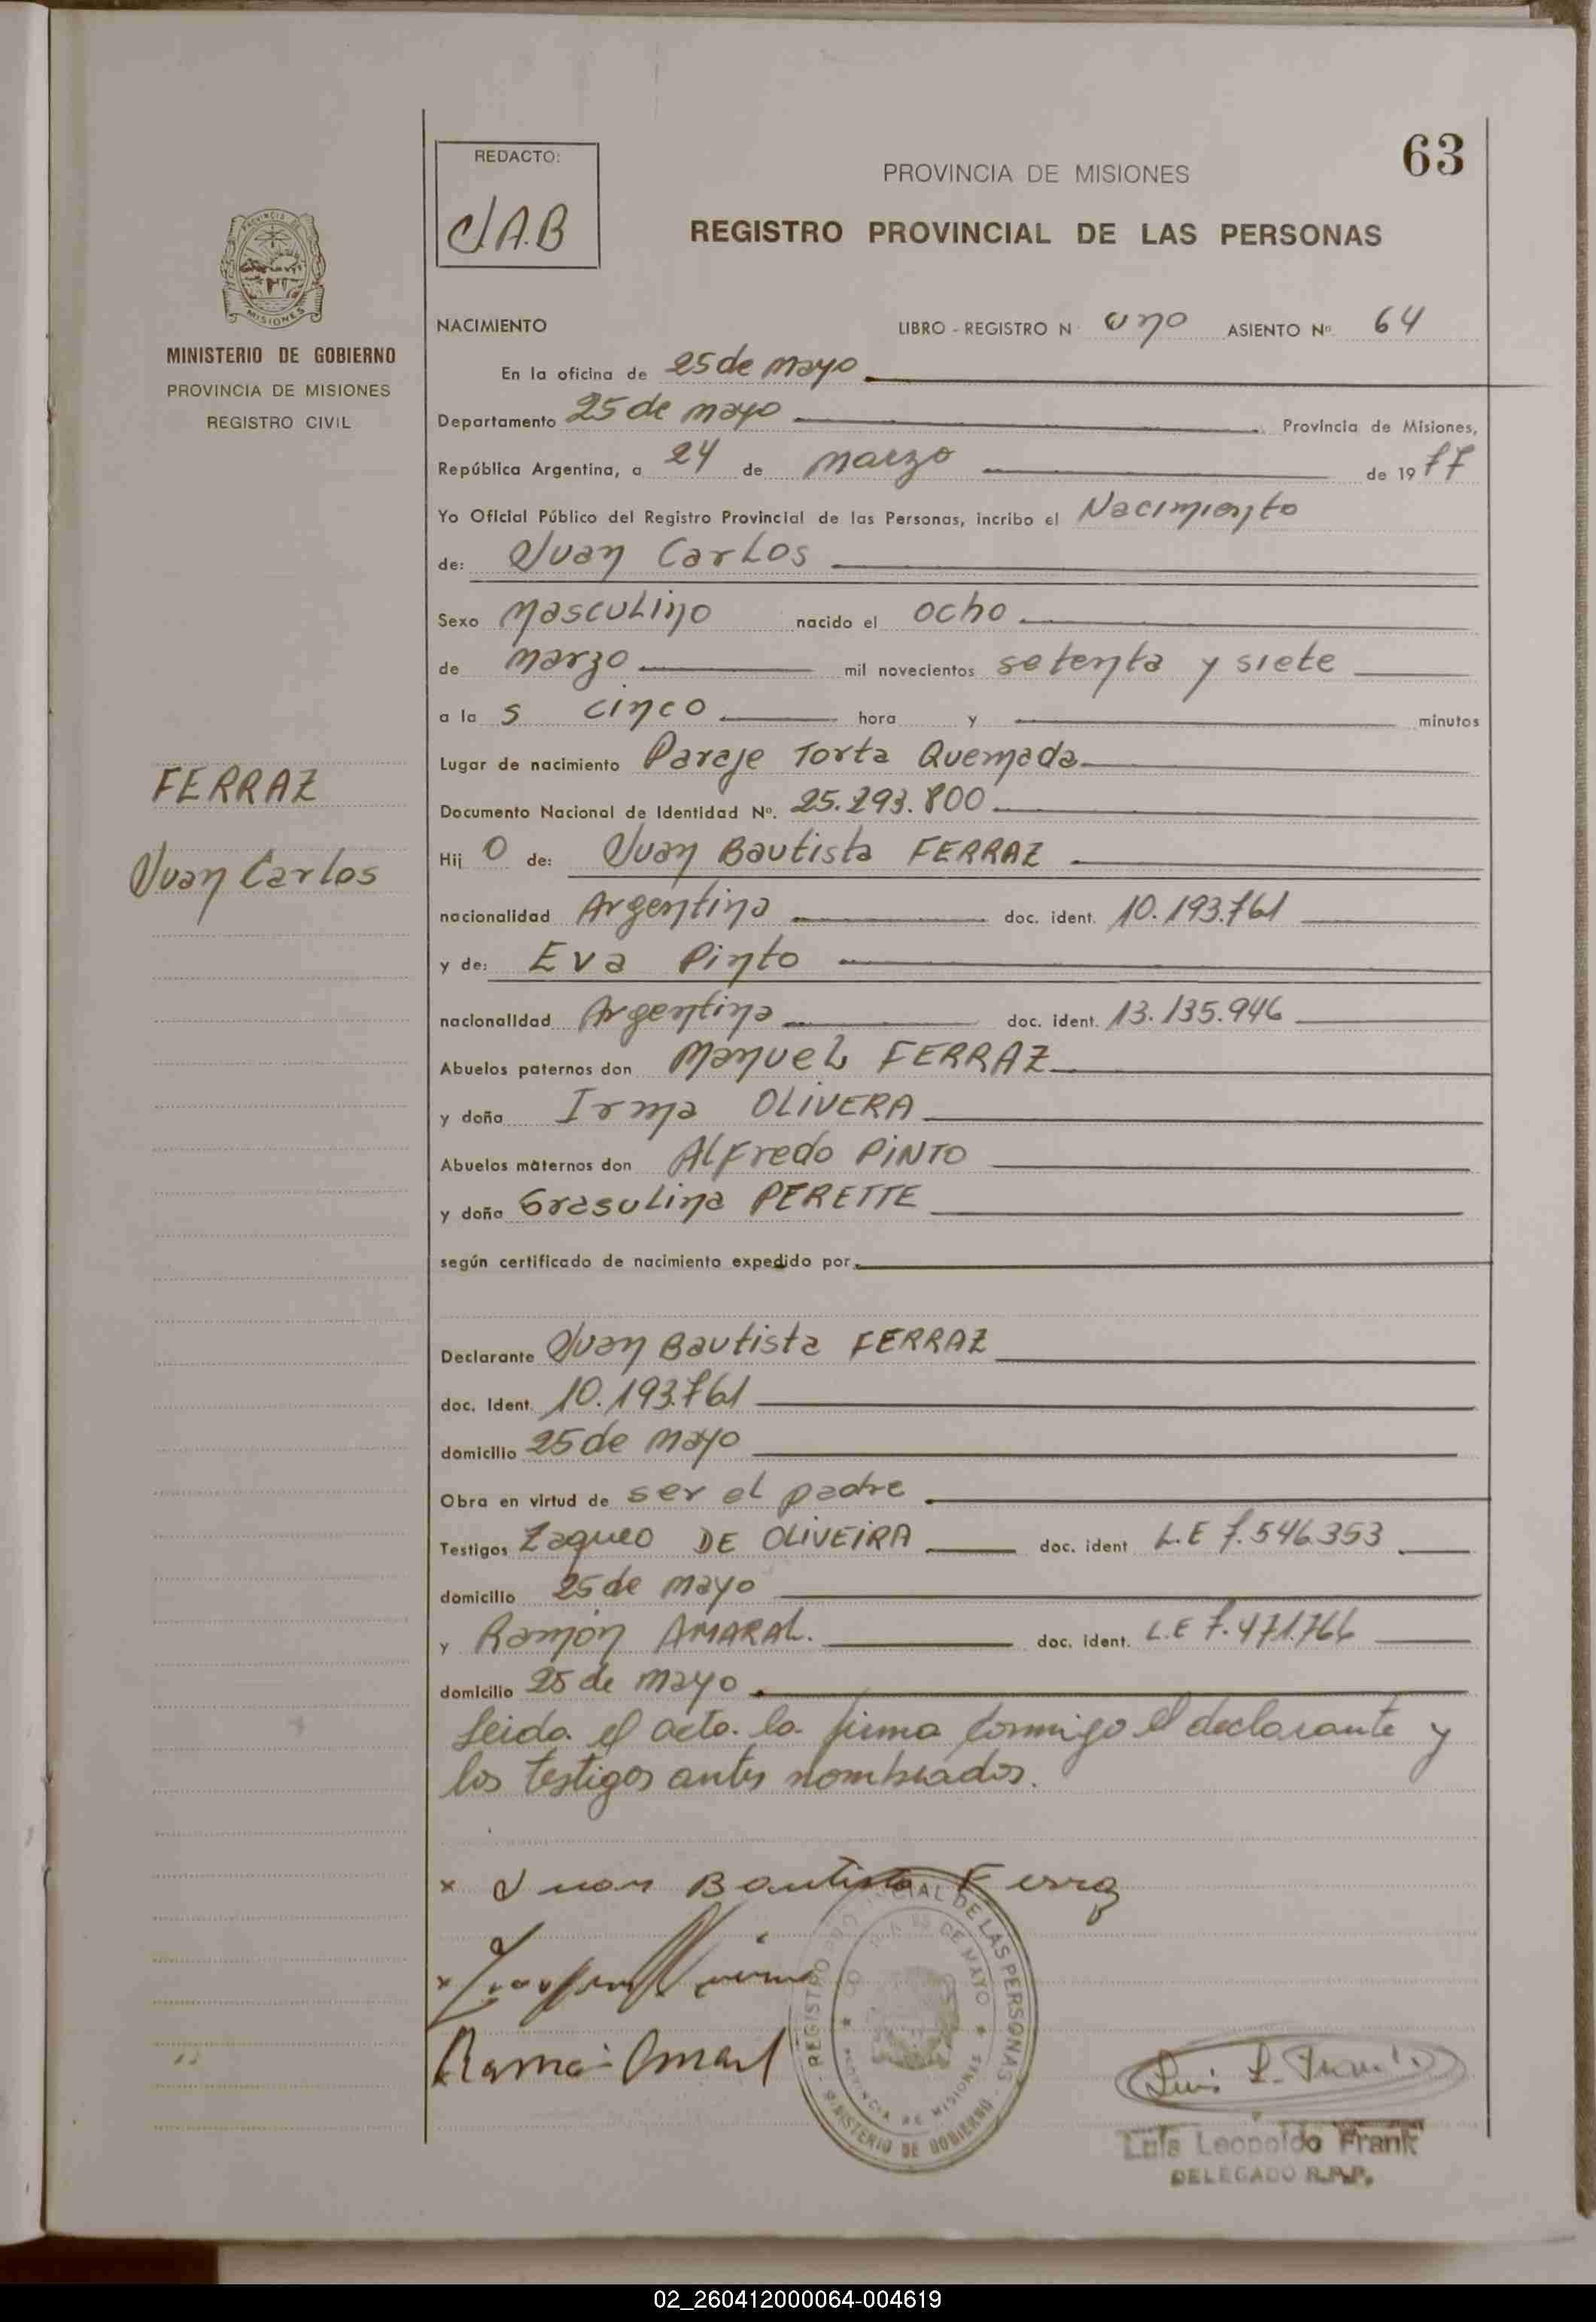 63
REDACTO:
JAB
PROVINCIA DE MISIONES
REGISTRO PROVINCIAL DE LAS PERSONAS
PROVINCIA
MISIONES
MINISTERIO DE GOBIERNO
PROVINCIA DE MISIONES
REGISTRO CIVIL
FERRAZ
Juan Carlos
NACIMIENTO LIBRO - REGISTRO N uno ASIENTO Nº 64
En la oficina de 25 de mayo
Departamento 25 de mayo Provincia de Misiones,
República Argentina, a 24 de marzo de 1977
Yo Oficial Público del Registro Provincial de las Personas, incribo el Nacimiento
de: Juan Carlos
Sexo masculino nacido el ocho
de marzo mil novecientos setenta y siete
a la s cinco hora y minutos
Lugar de nacimiento Paraje Torta Quemada
Documento Nacional de Identidad Nº. 25.293.800
Hij o de: Juan Bautista FERRAZ
nacionalidad Argentina doc. ident. 10.193.761
y de: Eva Pinto
nacionalidad Argentina doc. ident. 13.135.946
Abuelos paternos don Manuel FERRAZ
y doña Irma OLIVERA
Abuelos maternos don Alfredo PINTO
y doña Grasulina PERETTE
según certificado de nacimiento expedido por
Declarante Juan Bautista FERRAZ
doc. Ident. 10.193.761
domicilio 25 de mayo
Obra en virtud de ser el padre
Testigos Zaqueo DE OLIVEIRA doc. ident L.E 7.546.353
domicilio 25 de mayo
y Ramón AMARAL. doc. ident. L.E 7.471.766
domicilio 25 de mayo
Leida el acta la firma conmigo el declarante y
los testigos antes nombrados.
x Juan Bautista Ferraz
REGISTRO PROVINCIAL DE LAS PERSONAS
25 DE MAYO
PROVINCIA DE MISIONES
MINISTERIO DE GOBIERNO
Luis Leopoldo Frank
DELEGADO R.P.P.
02_260412000064-004619